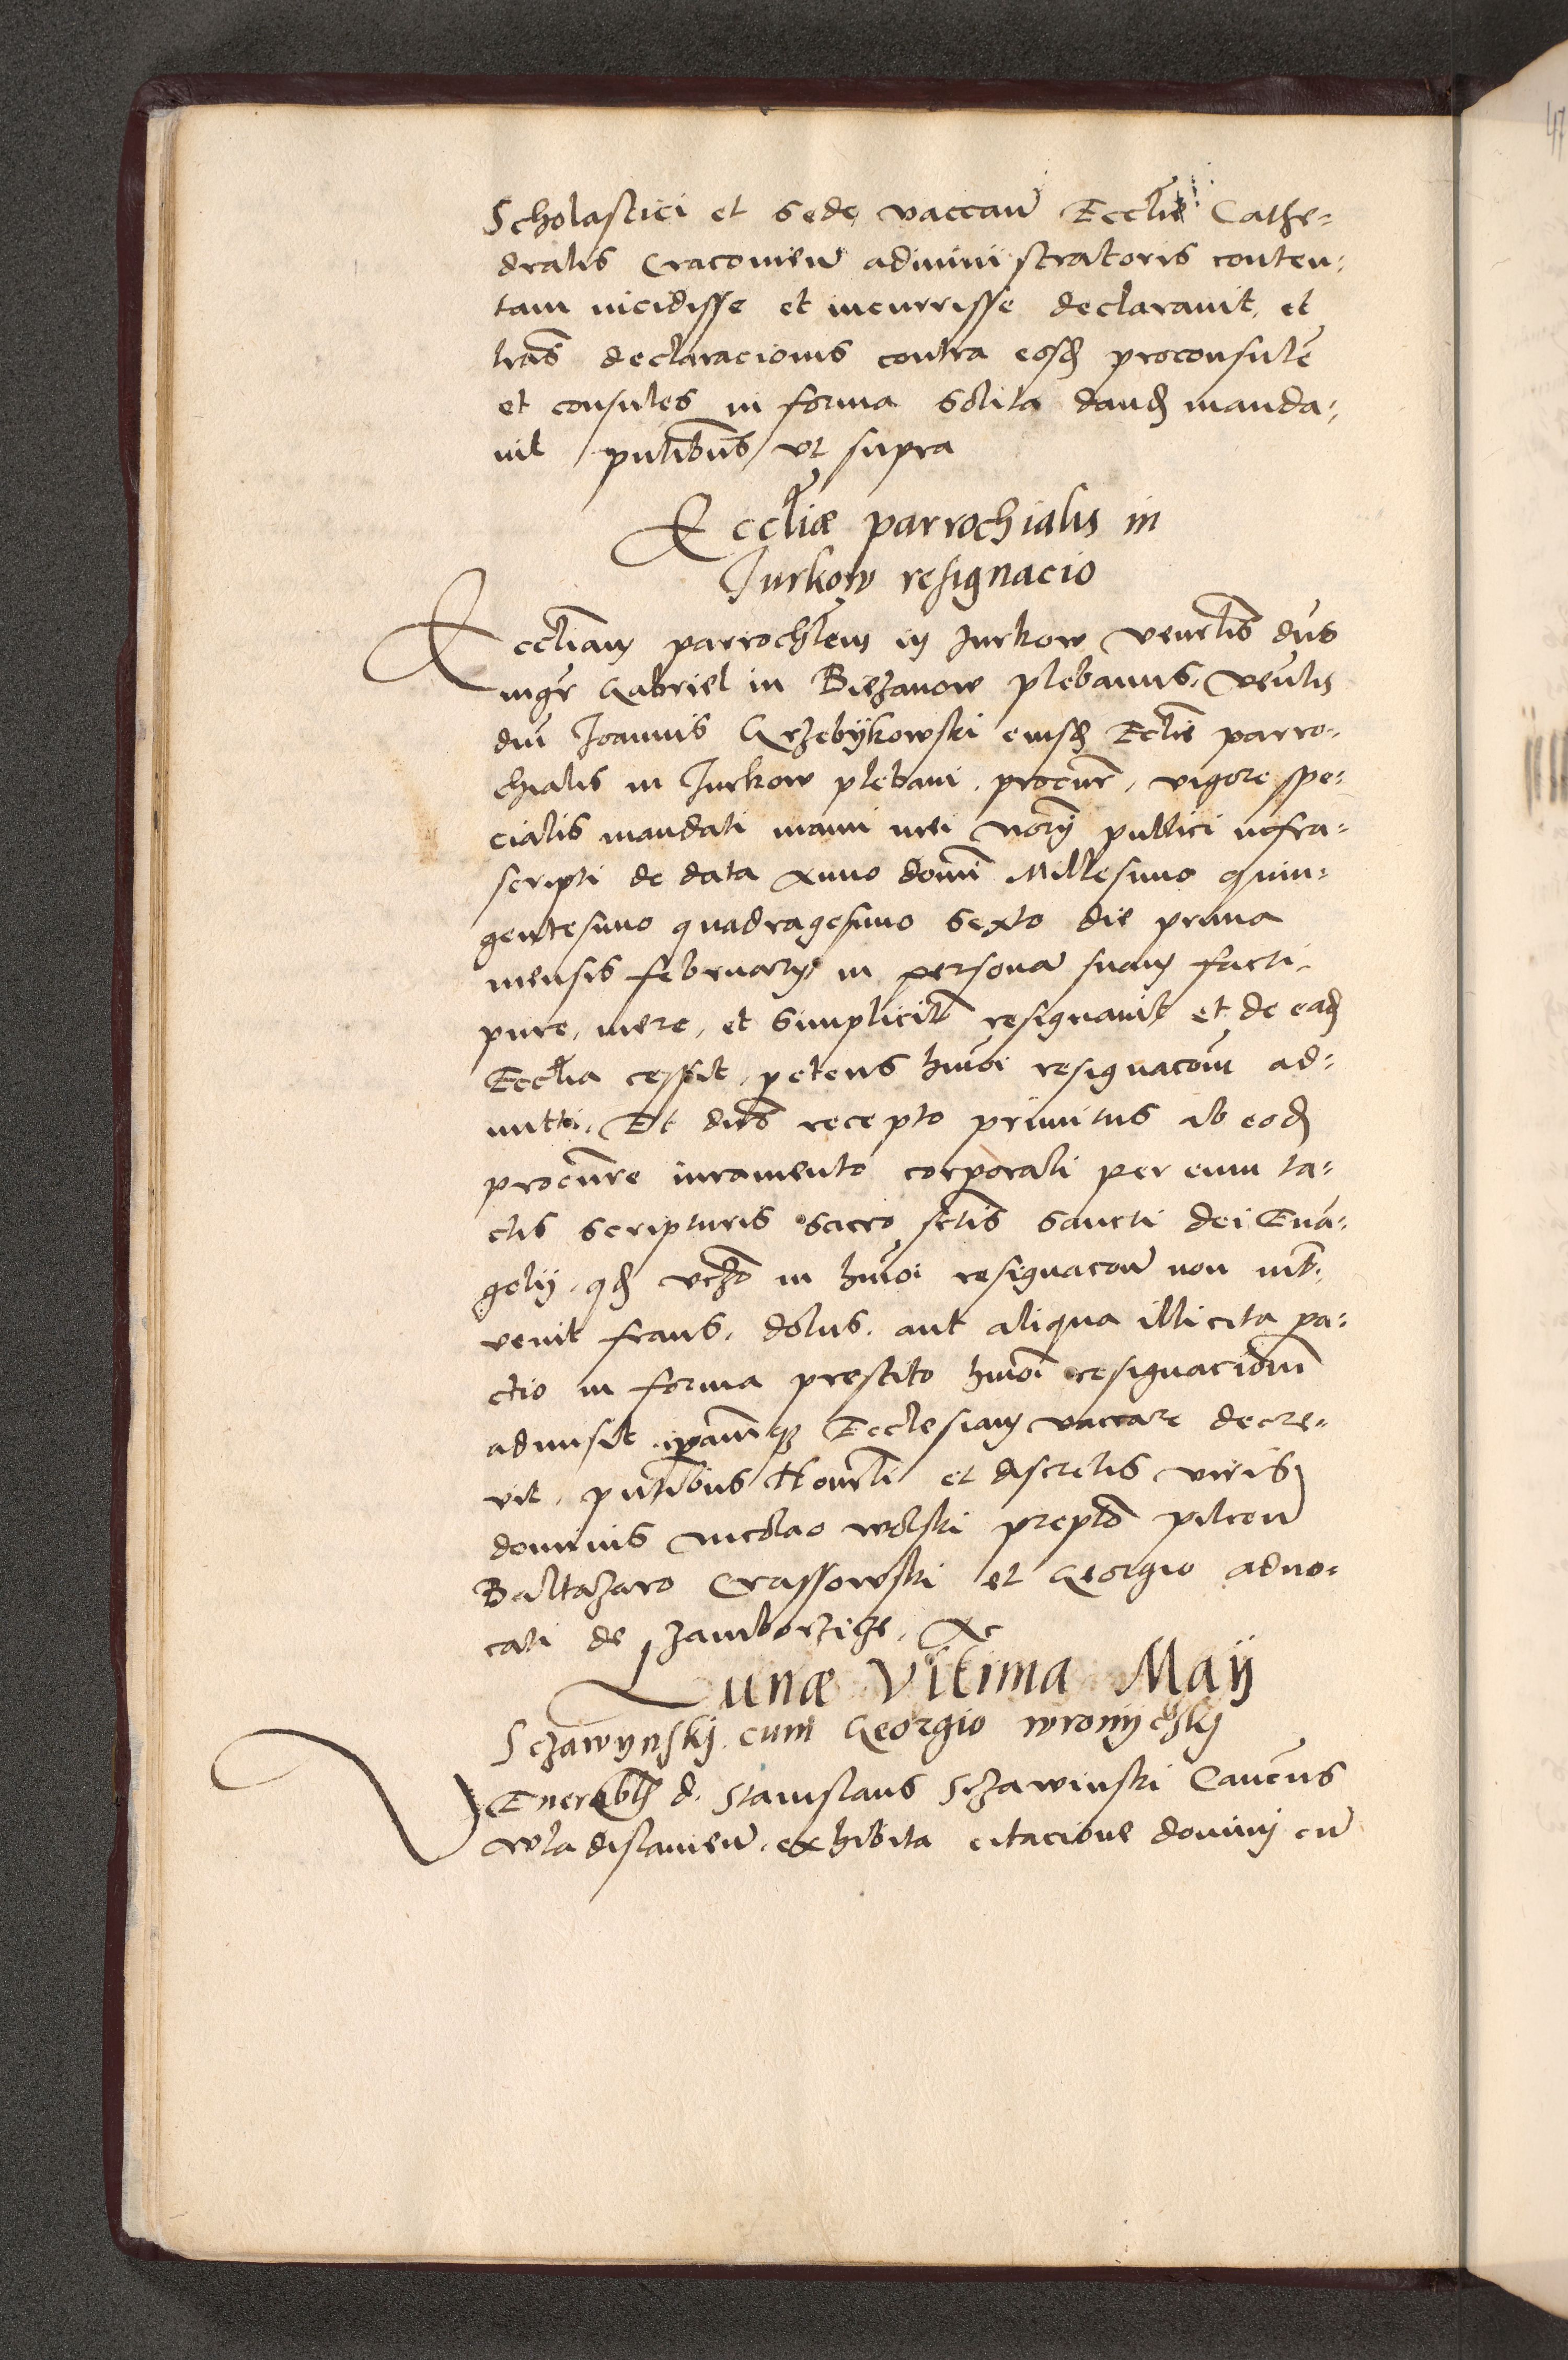 Scholastici et sede vaccan̄ Eccl̄ie Cathe=
dralis Cracovien̄ administratoris conten=
tam incidisse et incurrisse declaravit, et
lr̄as declaracionis contra eosd proconsulē
et consules in forma solita dand manda=
vit pn̄tibus ut supra
Eccl̄iæ parrochialis in
Jurkow resignacio
Eccl̄iam parrochl̄em in Jurkow venerl̄is dn̄s
mgr̄ Gabriel in Biezanow plebanus, ven̄lis
dn̄i Joannis Grzebijkowski eiusd Eccl̄ie parro=
chialis in Jurkow plebani, procur̄, vigore spe=
cialis mandati manu mei not̄rij publici infra=
scripti de data Anno domī Millesimo quin=
gentesimo quadragesimo sexto die prima
mensis februarij in personā suam facti,
pure, mere, et simplicit̄ resignavit et de ead
Eccl̄ia cessit, petens hm̄oi resignacōm ad=
mitti, Et dn̄s recepto primitus ab eod
procur̄re iuramento corporali per eum ta=
ctis scripturis sacro sctīs sancti dei Evā=
gelij, qd vcz̄ in hm̄oi resignacōn̄ non int̄=
venit fraus, dolus, aut aliqua illicita pa=
ctio in forma prestito hm̄oi resignacionē
admisit ip̄amq Ecclesiam vaccare decre=
vit, pn̄tibus Honerl̄i et discretis viris
dominis Nicolao Wolski prepto᷑ pilcen̄
Baltazaro Crassowski et Georgio advo=
cati de Zamborzicze, &c
Lunæ Vltima Maij
Sczawynskj cum Georgio wronyczskj
VEnerabl̄s d. Stanislaus Sczawinski Canc̄us
Wladislavien̄, exhibita citacione dominj cū